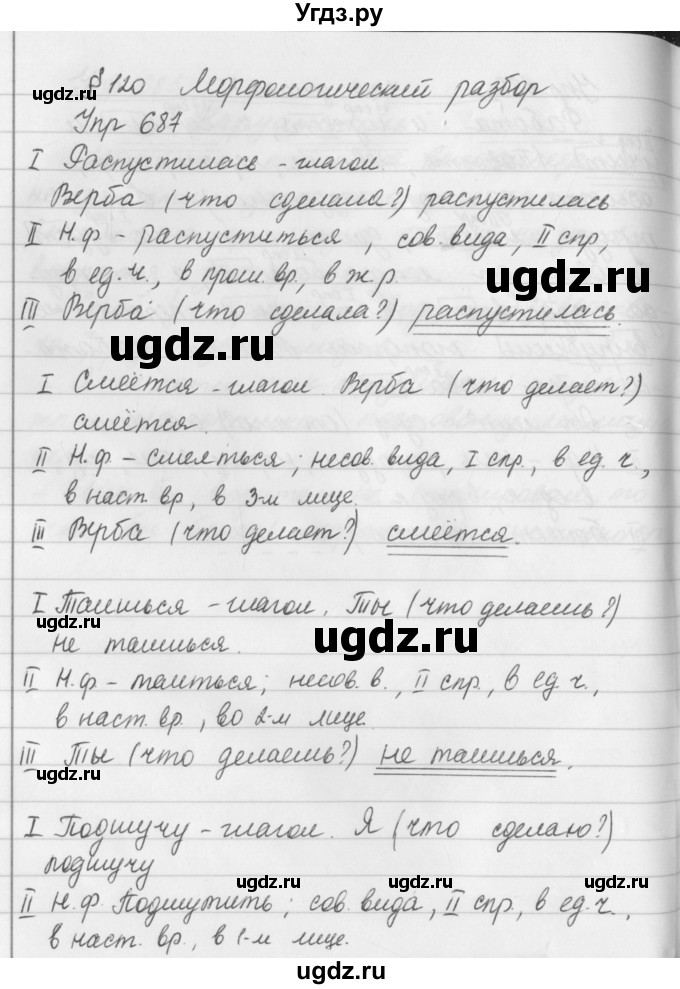 Угдз.ру
§ 120 Морфологический разбор
ugdz.ru
Упр 687
I Распустилась - глагол.
ugdz.ru
ugdz.ru
Верба (что сделала?) распустилась
II Н.ф - распуститься, сов. вида, II спр,
в ед. ч., в прош. вр., в ж. р.
ugdz.ru
III Верба (что сделала?) распустилась.
ugdz.ru
I Смеётся - глагол. Верба (что делает?)
смеётся.
ugdz.ru
II Н.ф - смеяться; несов. вида, I спр., в ед. ч.,
в наст. вр., в 3-м лице.
III Верба (что делает?) смеётся.
I Таишься - глагол. Ты (что делаешь?)
ugdz.ru
не таишься.
ugdz.ru
II Н.ф - таиться; несов. в., II спр., в ед. ч.,
в наст. вр., во 2-м лице.
III Ты (что делаешь?) не таишься.
ugdz.ru
I Подшучу - глагол. Я (что сделаю?)
подшучу
ugdz.ru
ugdz.ru
II Н.ф. Подшутить; сов. вида, II спр., в ед. ч.,
в наст. вр., в 1-м лице.
ugdz.ru